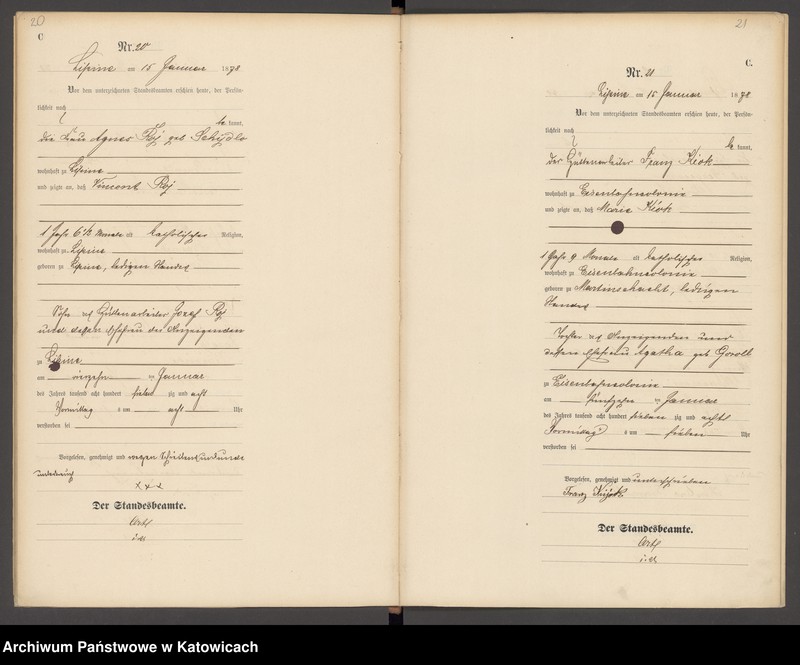 20
C
Nr. 20
Lipine am 15 Januar 1878
Vor dem unterzeichneten Standesbeamten erschien heute, der Persön-
lichkeit nach
be kannt,
die Frau Agnes Roj geb.
wohnhaft zu Lipine
und zeigte an, daß Vincent Roj
1 Jahr 6½ Monate alt katholischer Religion,
wohnhaft zu Lipine
geboren zu Lipine, ledigen Standes
Sohn des Hüttenarbeiter Josef Roj
und dessen Ehefrau der Anzeigenden
zu Lipine
am vierzehn ten Januar
des Jahres tausend acht hundert sieben zig und acht
Vormittag s um acht Uhr
verstorben sei
Vorgelesen, genehmigt und wegen
xxx
Der Standesbeamte.
21
C.
Nr. 21
Lipine am 15 Januar 1878
Vor dem unterzeichneten Standesbeamten erschien heute, der Persön-
lichkeit nach
be kannt,
der Hüttenarbeiter Franz
wohnhaft zu Eisenbahncolonie
und zeigte an, daß Marie
1 Jahr 9 Monate alt katholischer Religion,
wohnhaft zu Eisenbahncolonie
geboren zu Martinschacht, ledigen
Standes
Tochter des Anzeigenden und
dessen Ehefrau Agatha geb.
zu Eisenbahncolonie
am fünfzehn ten Januar
des Jahres tausend acht hundert sieben zig und acht
Vormittag s um sieben Uhr
verstorben sei
Vorgelesen, genehmigt und unterschrieben
Franz
Der Standesbeamte.
Archiwum Państwowe w Katowicach